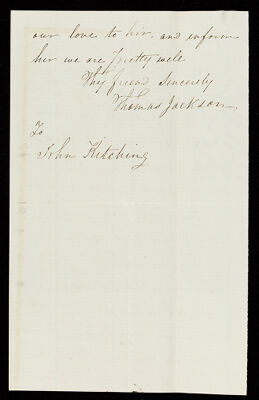 our love to her, and inform
her we are pretty well
Thy friend Sincerely
Thomas Jackson,
To
John Kitching